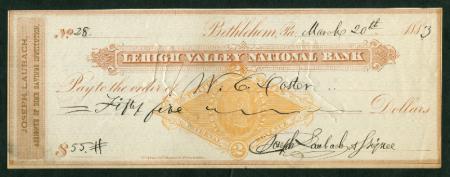 JOSEPH LAUBACH,
ASSIGNEE OF DIME SAVINGS INSTITUTION.
No. 28. Bethlehem, Pa. March 20th 1883
LEHIGH VALLEY NATIONAL BANK
Pay to the order of W. C. Coster
Fifty five Dollars
2
$55.## Joseph Laubach Assignee